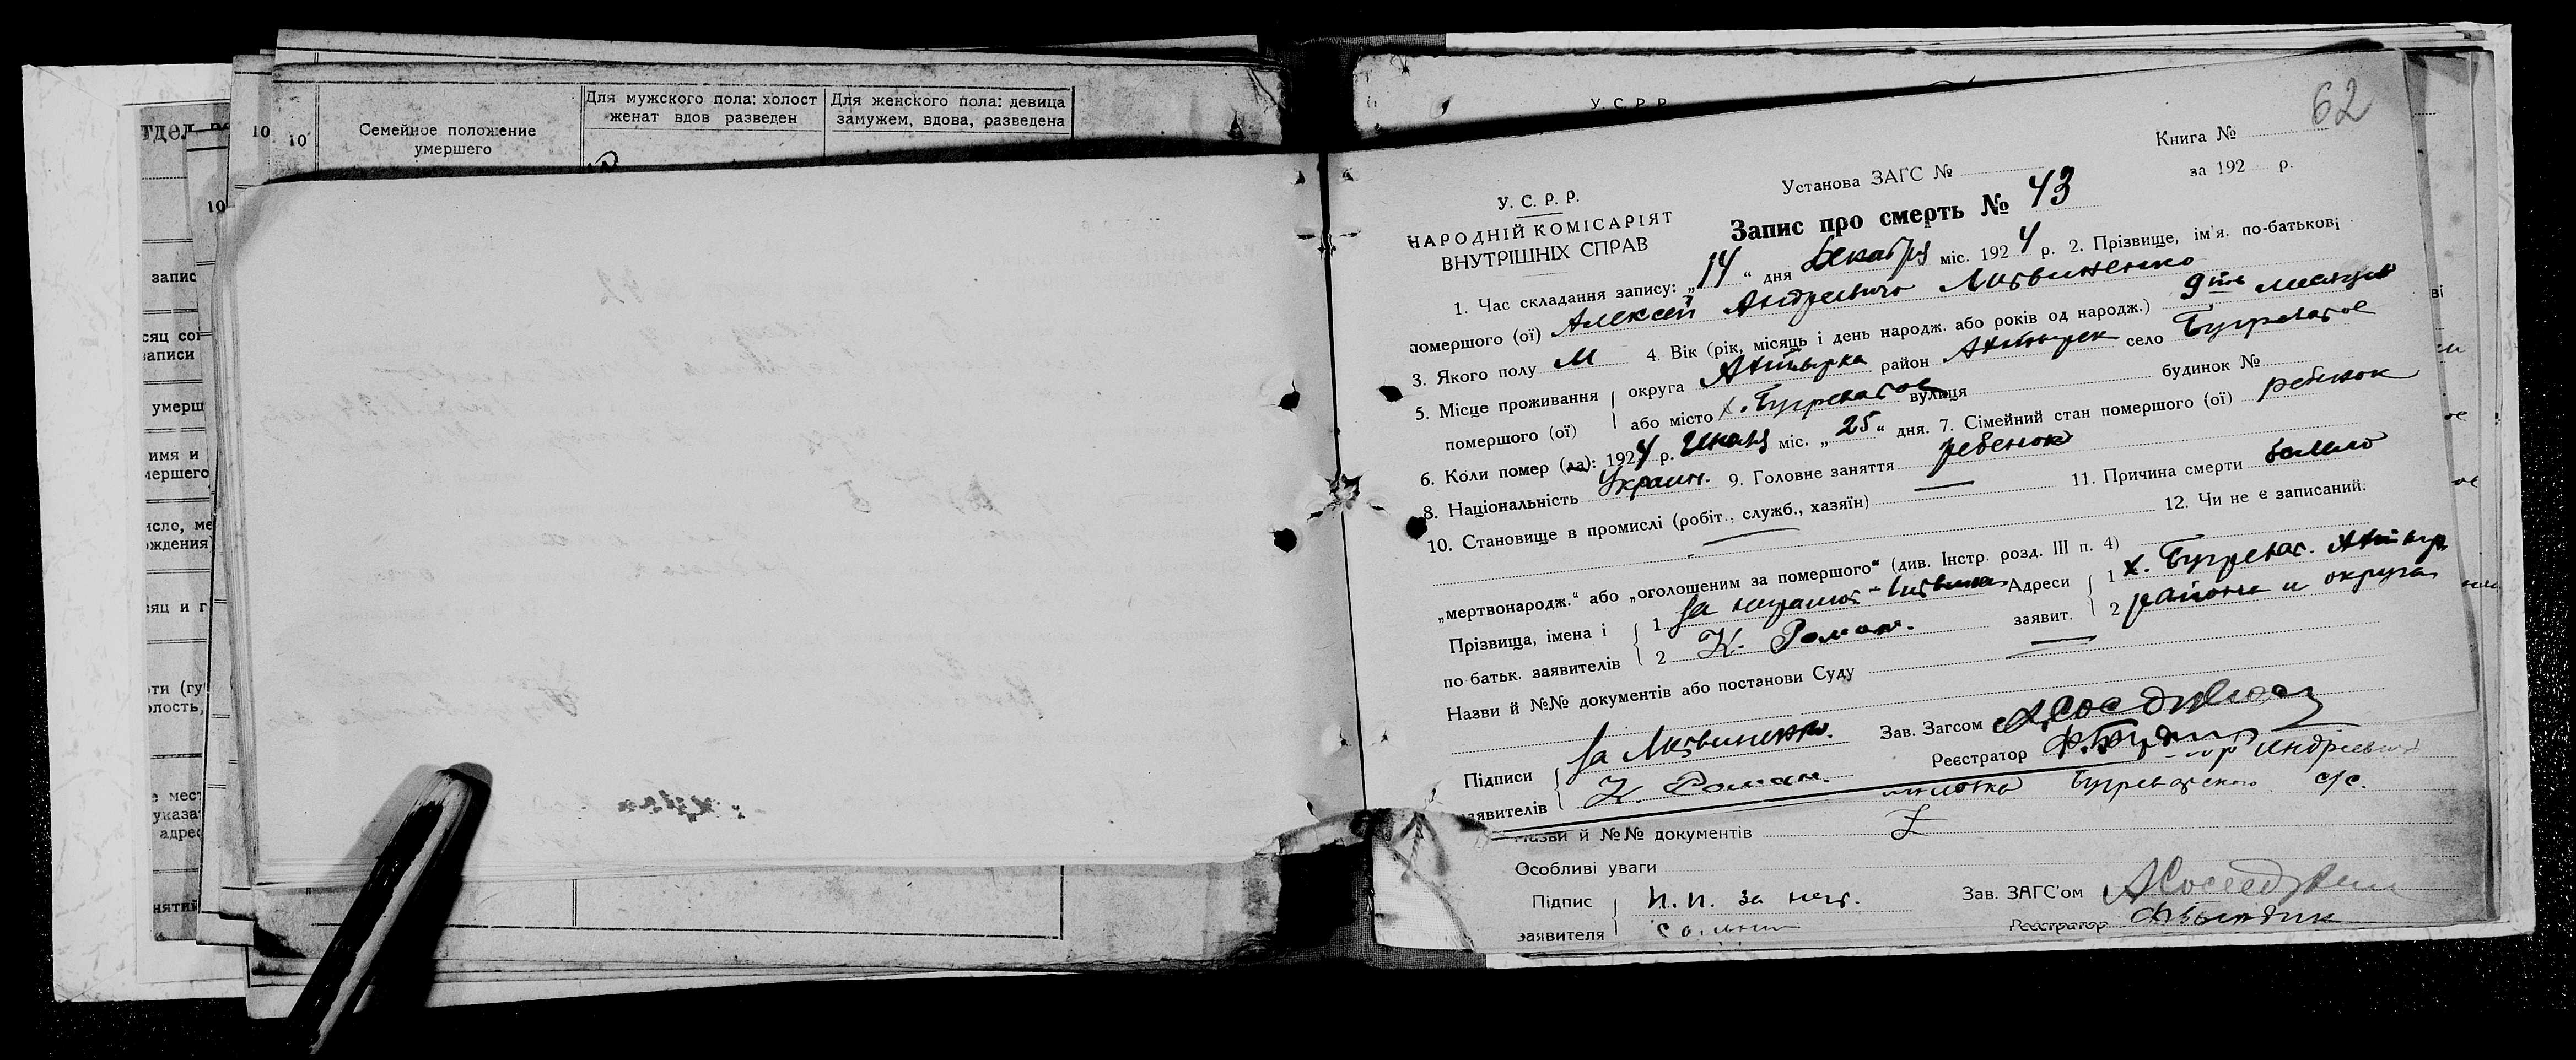 10
10
10
Семейное положение
умершего
Для мужского пола: холост
женат вдов разведен
Для женского пола: девица
замужем, вдова, разведена
запис
сяц
записи
умерш
имя и
мершего
исло, ме
ождения
яц и г
ти (гу
олость,
е мест
указа
адрес
нятий
У. С. Р. Р.
62
Книга №
за 192 р.
Установа ЗАГС №
У. С. Р. Р.
НАРОДНІЙ КОМІСАРІЯТ
ВНУТРІШНІХ СПРАВ
Запис про смерть № 43
1. Час складання запису: „14“ дня Декабря міс. 1924 р. 2. Прізвище, ім'я. по-батькові
помершого (ої) Алексей Андреевич Литвиненко
3. Якого полу М 4. Вік (рік, місяць і день народж. або років од народж.) 9ти месяцев
5. Місце проживання округа Ахтырка район Ахтырск село Бугреватое
помершого (ої) або місто х. Бугреватое вулиця будинок №
6. Коли помер (ла): 1924 р. Июня міс. „25“ дня. 7. Сімейний стан помершого (ої) ребенок
8. Національність Украин. 9. Головне заняття ребенок
10. Становище в промислі (робіт., служб., хазяїн) — 11. Причина смерти
12. Чи не є записаний.
„мертвонародж.“ або „оголошеним за помершого“ (див. Інстр. розд. III п. 4)
Прізвища, імена і 1 за неграмот. Адреси 1 х. Бугреват. Ахтыр.
по батьк. заявителів 2 К. Роман. заявит. 2 района и округа
Назви й №№ документів або постанови Суду —
Підписи за Литвиненко. Зав. Загсом
заявителів К. Роман. Реєстратор
Бугреватского с/с.
Назви й №№ документів
Особливі уваги
Підпис Н. П. за нег. Зав. ЗАГС'ом
заявителя Реєстратор